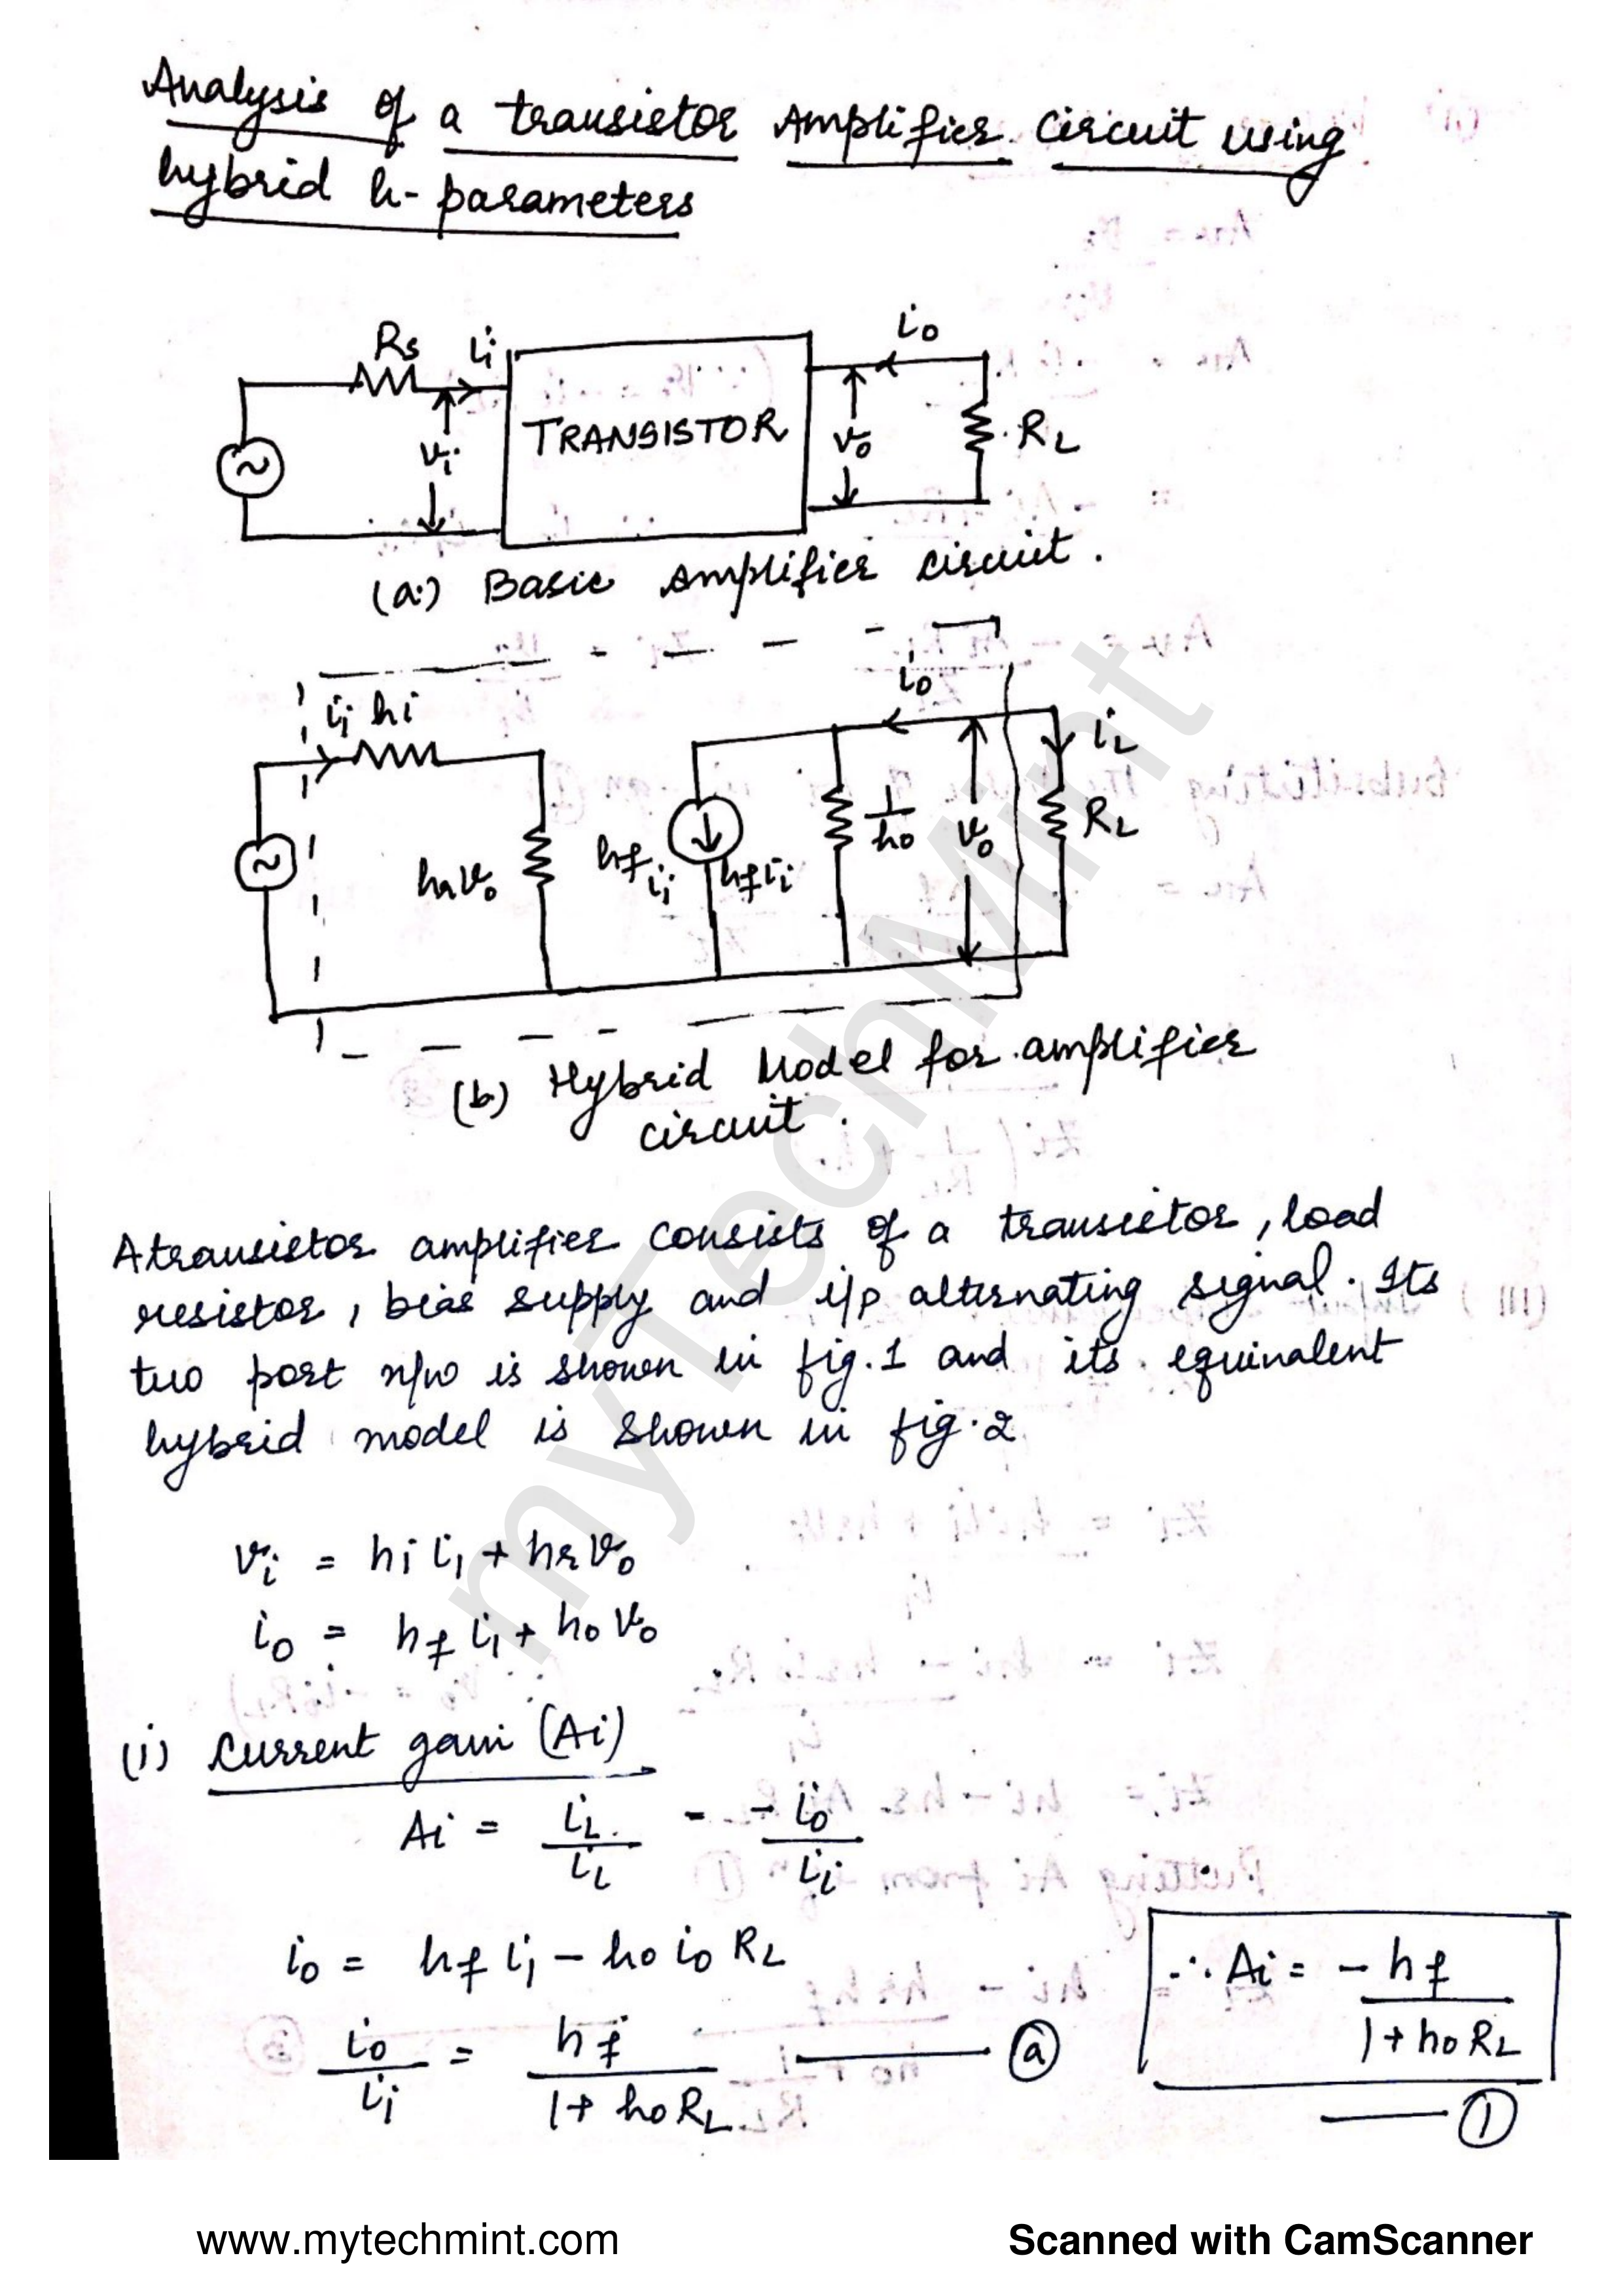 Analysis of a transistor Amplifier Circuit using
hybrid h-parameters
Rs
ii
io
TRANSISTOR
vi
vo
RL
(a) Basic Amplifier circuit.
ii hi
io
iL
hrvo
hf ii
hf ii
1/ho
vo
RL
(b) Hybrid Model for amplifier
circuit.
A transistor amplifier consists of a transistor, load
resistor, bias supply and i/p alternating signal. Its
two port n/w is shown in fig.1 and its equivalent
hybrid model is shown in fig.2
vi = hi ii + hr vo
io = hf ii + ho vo
(i) Current gain (Ai)
Ai = iL/ii = -io/ii
io = hf ii - ho io RL
io/ii = hf/(1 + ho RL) — (a)
∴ Ai = -hf/(1 + ho RL)
— (1)
myTechMint
www.mytechmint.com
Scanned with CamScanner